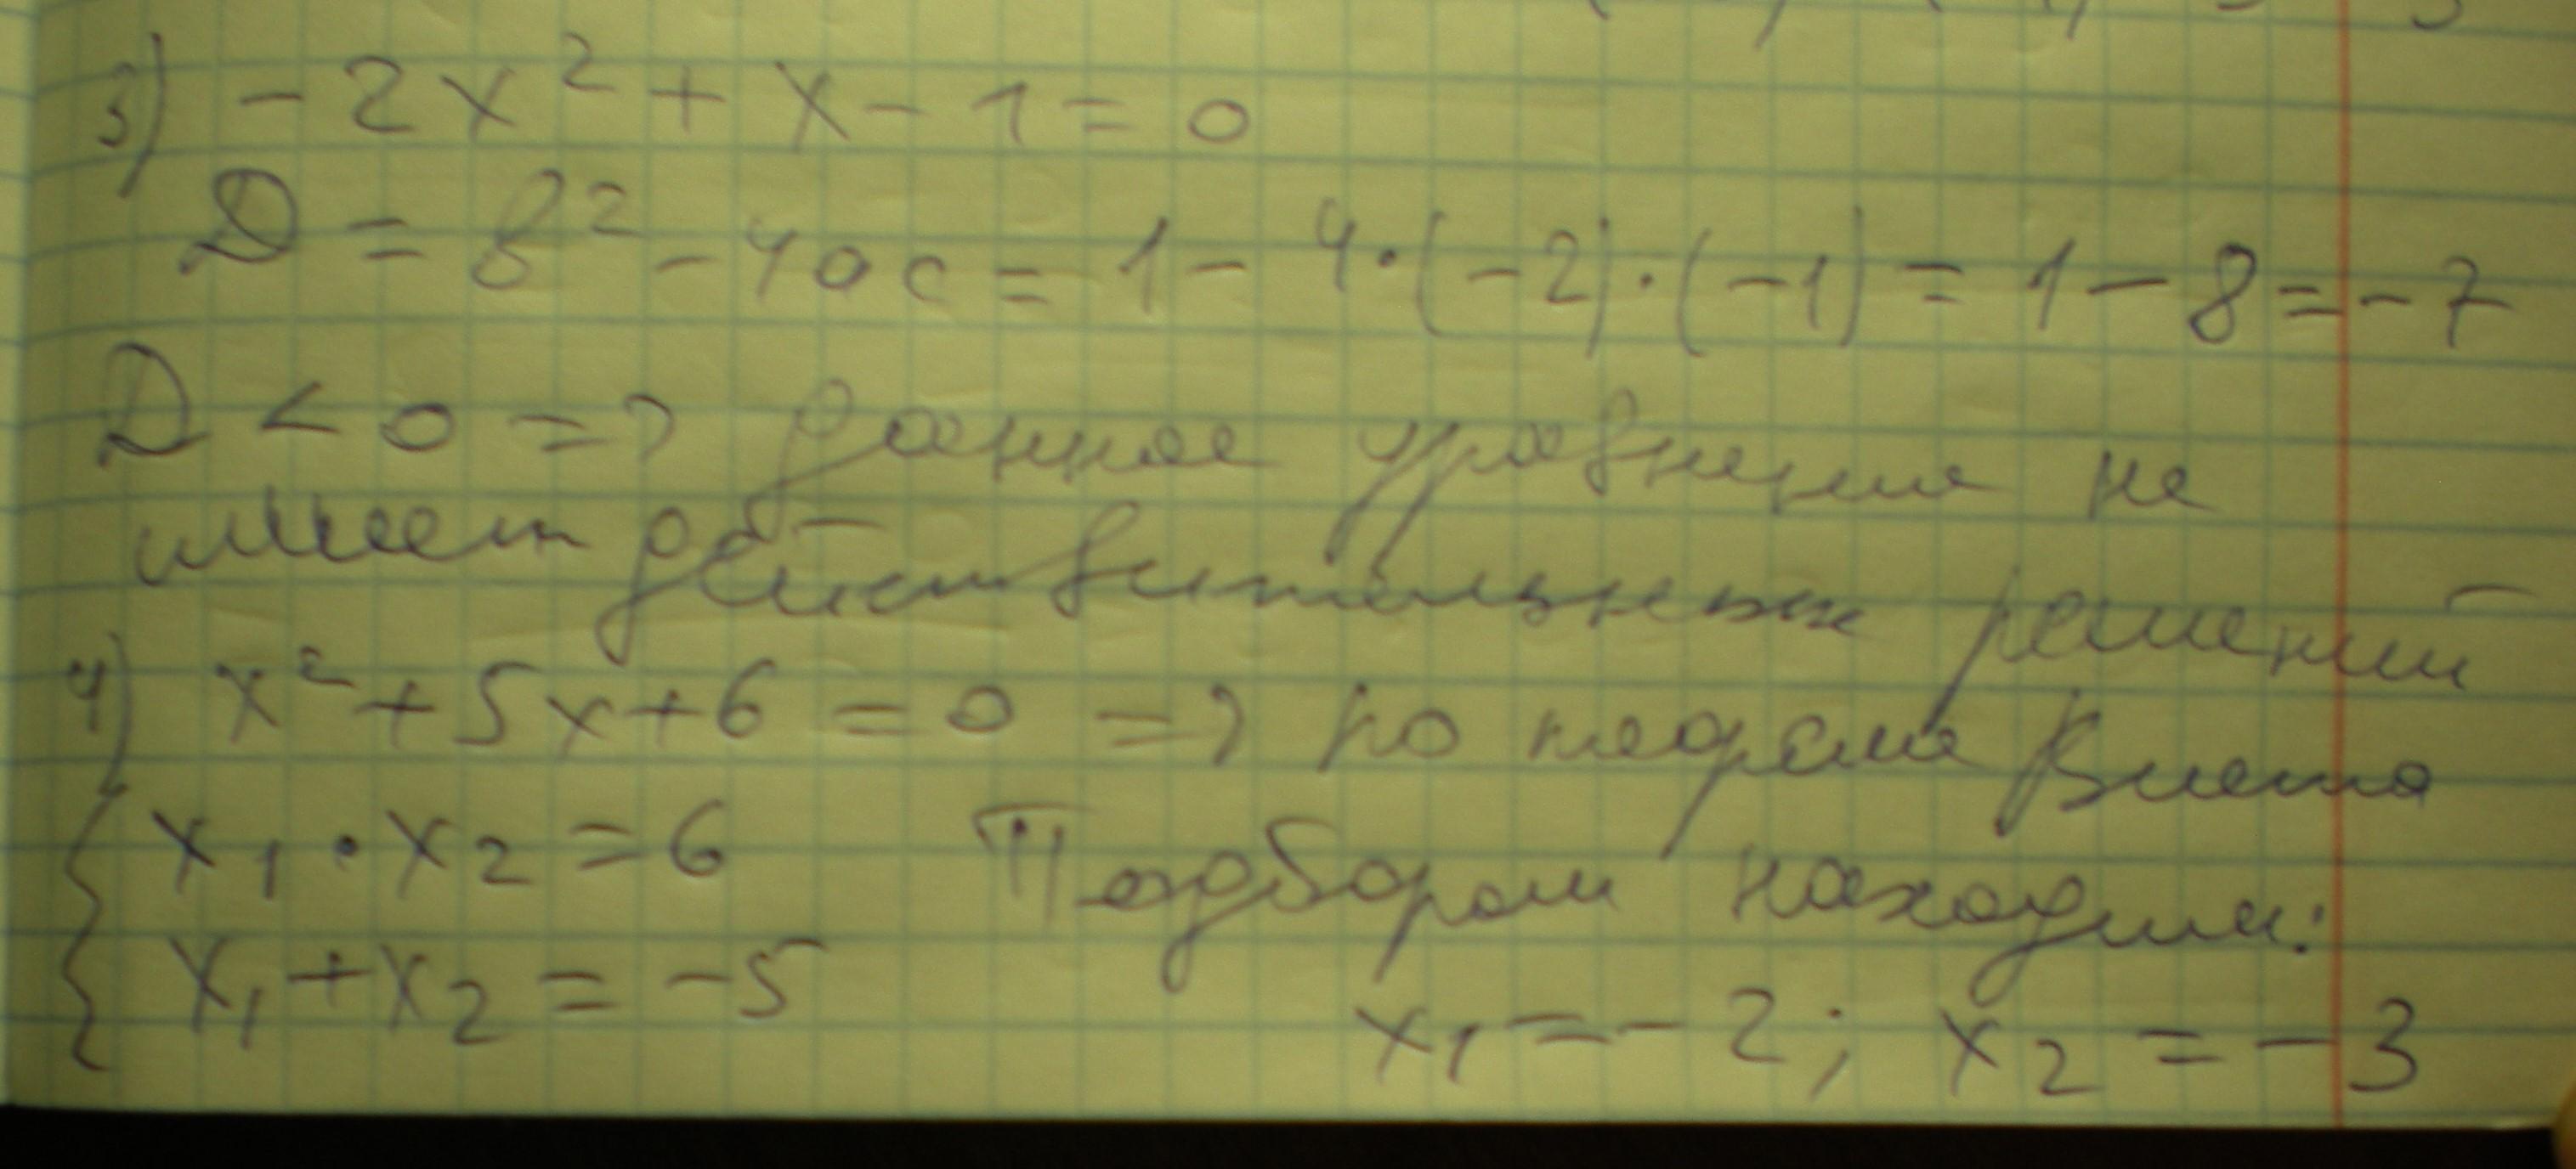 3) -2x² + x - 1 = 0
D = в² - 4ac = 1 - 4·(-2)·(-1) = 1 - 8 = -7
D < 0 => данное уравнение не
имеет действительных решений
4) x² + 5x + 6 = 0 => по теореме Виета
{ x₁ · x₂ = 6 Подбором находим:
x₁ + x₂ = -5 x₁ = -2; x₂ = -3